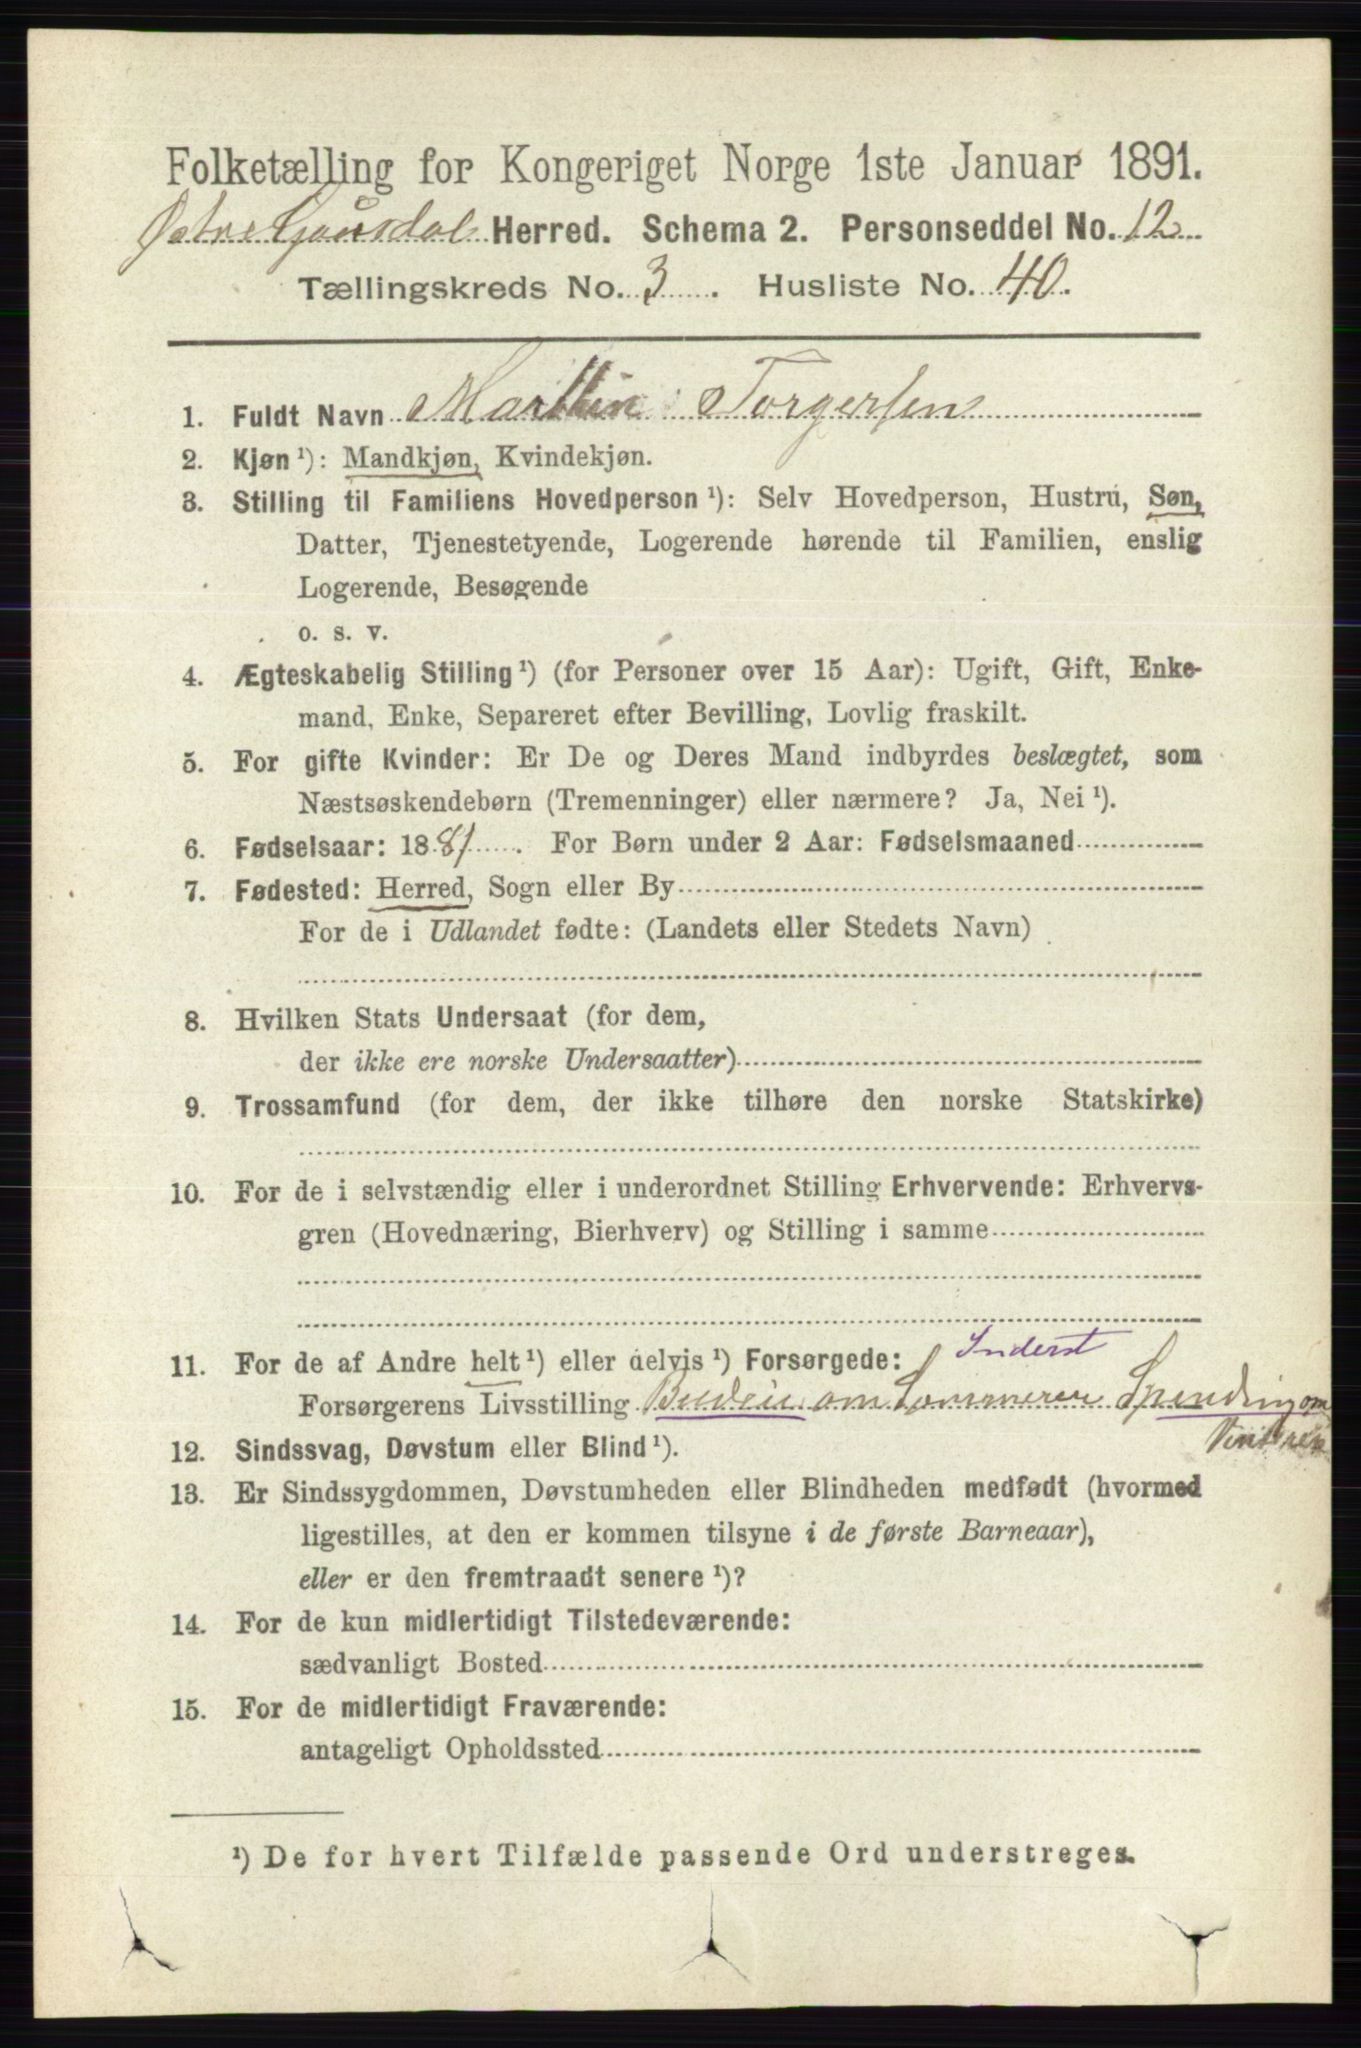 Folketælling for Kongeriget Norge 1ste Januar 1891.
Østre Gausdal Herred. Schema 2. Personseddel No. 12
Tællingskreds No. 3. Husliste No. 40.
1. Fuldt Navn Martin Torgersen
2. Kjøn ¹): Mandkjøn, Kvindekjøn.
3. Stilling til Familiens Hovedperson ¹): Selv Hovedperson, Hustru, Søn,
Datter, Tjenestetyende, Logerende hørende til Familien, enslig
Logerende, Besøgende
o. s. v.
4. Ægteskabelig Stilling ¹) (for Personer over 15 Aar): Ugift, Gift, Enke-
mand, Enke, Separeret efter Bevilling, Lovlig fraskilt.
5. For gifte Kvinder: Er De og Deres Mand indbyrdes beslægtet, som
Næstsøskendebørn (Tremenninger) eller nærmere? Ja, Nei ¹).
6. Fødselsaar: 1881. For Børn under 2 Aar: Fødselsmaaned
7. Fødested: Herred, Sogn eller By
For de i Udlandet fødte: (Landets eller Stedets Navn)
8. Hvilken Stats Undersaat (for dem,
der ikke ere norske Undersaatter)
9. Trossamfund (for dem, der ikke tilhøre den norske Statskirke)
10. For de i selvstændig eller i underordnet Stilling Erhvervende: Erhvervs-
gren (Hovednæring, Bierhverv) og Stilling i samme
Inderst
11. For de af Andre helt ¹) eller delvis ¹) Forsørgede:
Forsørgerens Livsstilling Budeie om Sommeren Spinding om
Vinteren
12. Sindssvag, Døvstum eller Blind ¹).
13. Er Sindssygdommen, Døvstumheden eller Blindheden medfødt (hvormed
ligestilles, at den er kommen tilsyne i de første Barneaar),
eller er den fremtraadt senere ¹)?
14. For de kun midlertidigt Tilstedeværende:
sædvanligt Bosted
15. For de midlertidigt Fraværende:
antageligt Opholdssted
¹) De for hvert Tilfælde passende Ord understreges.